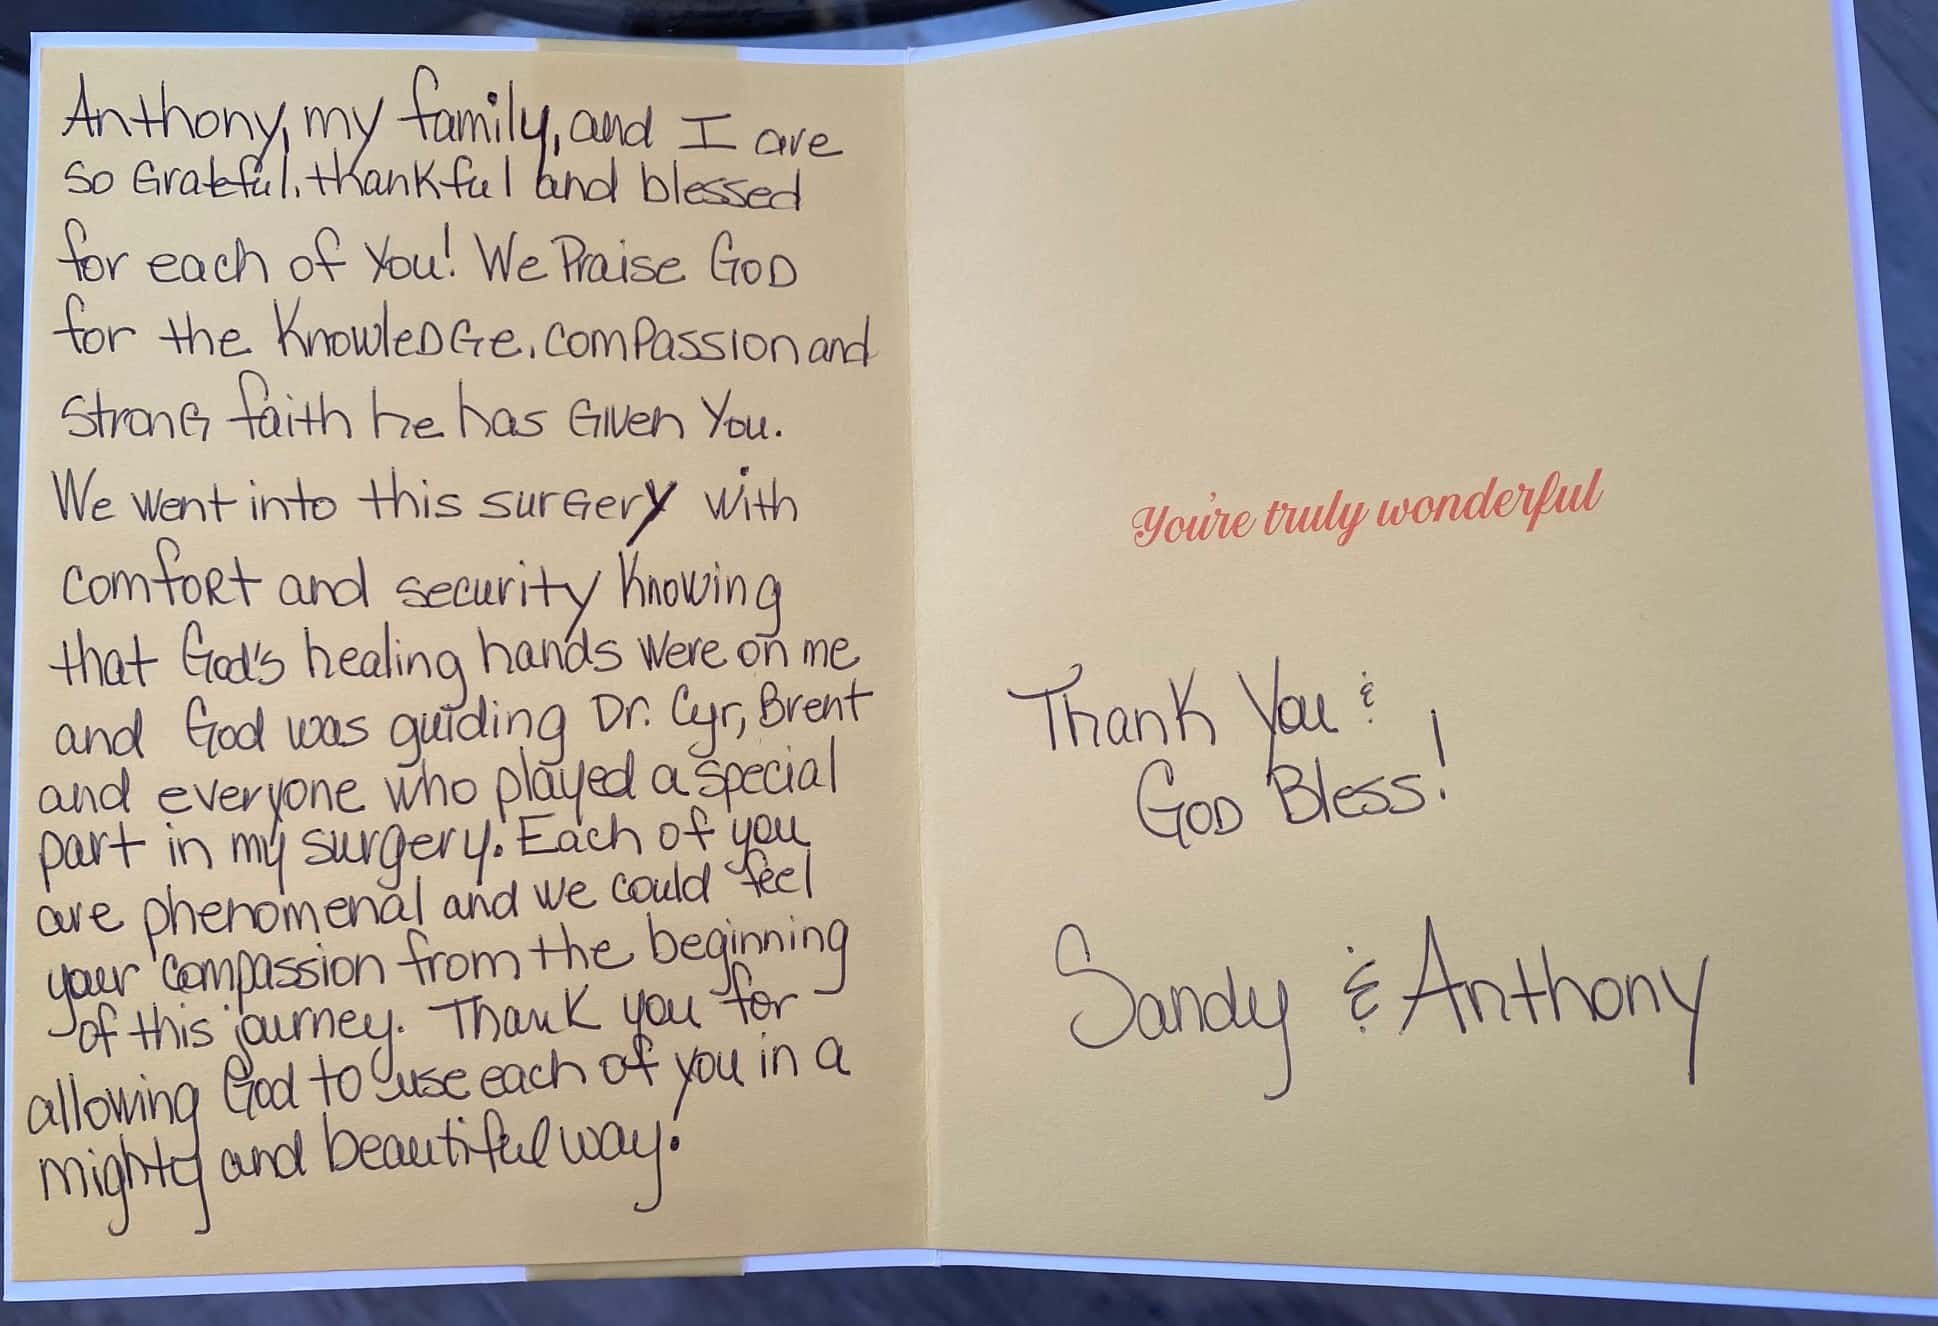 Anthony, my family, and I are
so Grateful, thankful and blessed
for each of You! We Praise GOD
for the KnowleDGe, comPassion and
stronG faith he has GIven You.
We went into this surGery with
comfoRt and security Knowing
that God's healing hands were on me
and God was guiding Dr. Cyr, Brent
and everyone who played a special
part in my surgery. Each of you
are phenomenal and we could feel
your compassion from the beginning
of this journey. Thank you for
allowing God to use each of you in a
mighty and beautiful way.
You're truly wonderful
Thank You &
GOD Bless!
Sandy & Anthony